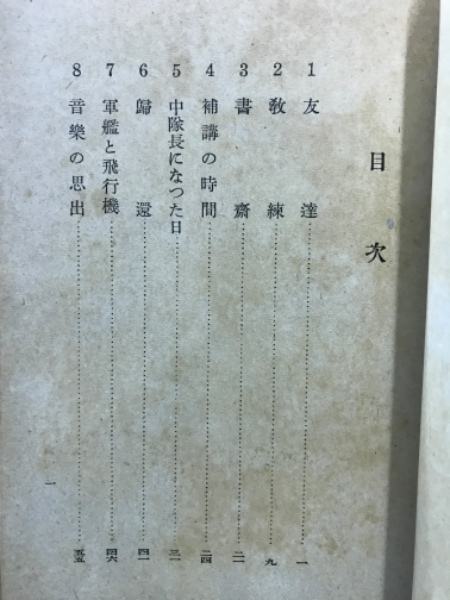 目次
1 友達 一
2 教練 九
3 書齋 二一
4 補講の時間 二四
5 中隊長になつた日 三一
6 歸還 四一
7 軍艦と飛行機 四六
8 音樂の思出 五五
一